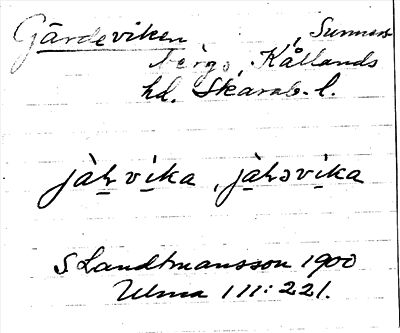 Gärdeviken, Sunners-
bergs, Kållands
hd. Skarab. l.
jàꞎvika, jàꞎɔvika
S Landtmansson 1900
Ulma 111:221.